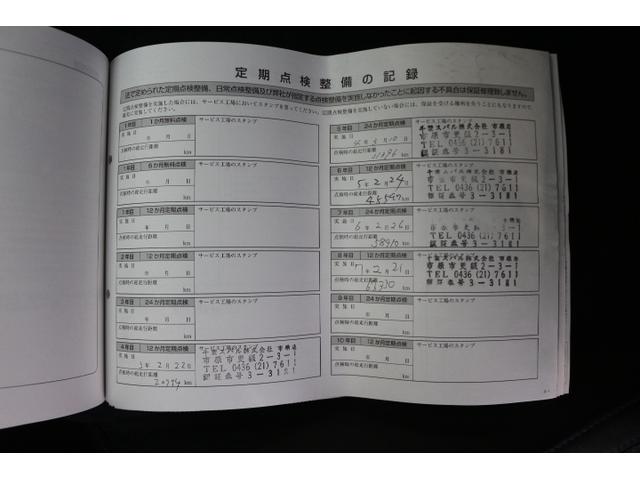 定期点検整備の記録
法で定められた定期点検整備、日常点検整備及び弊社が指定する点検整備を実施しなかったことに起因する不具合は保証修理致しません。
定期点検を実施した場合には、サービス工場においてスタンプを
1年目 1か月無料点検 サービス工場のスタンプ
実施日 年 月 日
点検時の総走行距離
km
1年目 6か月無料点検 サービス工場のスタンプ
実施日 年 月 日
点検時の総走行距離
km
1年目 12か月定期点検 サービス工場のスタンプ
実施日 年 月 日
点検時の総走行距離
km
2年目 12か月定期点検 サービス工場のスタンプ
実施日 年 月 日
点検時の総走行距離
km
3年目 24か月定期点検 サービス工場のスタンプ
実施日 年 月 日
点検時の総走行距離
km
4年目 12か月定期点検 サービス工場のスタンプ
実施日 3年2月22日
点検時の総走行距離
km
千葉スバル株式会社 市原店
市原市更級2-3-1
TEL 0436 (21) 7611
認証番号 3-3181
5年目 24か月定期点検 サービス工場のスタンプ
実施日 4年3月10日
点検時の総走行距離
km
千葉スバル株式会社 市原店
市原市更級2-3-1
TEL 0436 (21) 7611
認証番号 3-3181
6年目 12か月定期点検 サービス工場のスタンプ
実施日 5年2月24日
点検時の総走行距離
km
千葉スバル株式会社 市原店
市原市更級2-3-1
TEL 0436 (21) 7611
認証番号 3-3181
7年目 24か月定期点検 サービス工場のスタンプ
実施日 6年2月26日
点検時の総走行距離
58910 km
TEL 0436 (21) 7611
認証番号 3-3181
8年目 12か月定期点検 サービス工場のスタンプ
実施日 7年2月21日
点検時の総走行距離
km
千葉スバル株式会社 市原店
市原市更級2-3-1
TEL 0436 (21) 7611
認証番号 3-3181
9年目 24か月定期点検 サービス工場のスタンプ
実施日 年 月 日
点検時の総走行距離
km
10年目 12か月定期点検 サービス工場のスタンプ
実施日 年 月 日
点検時の総走行距離
km